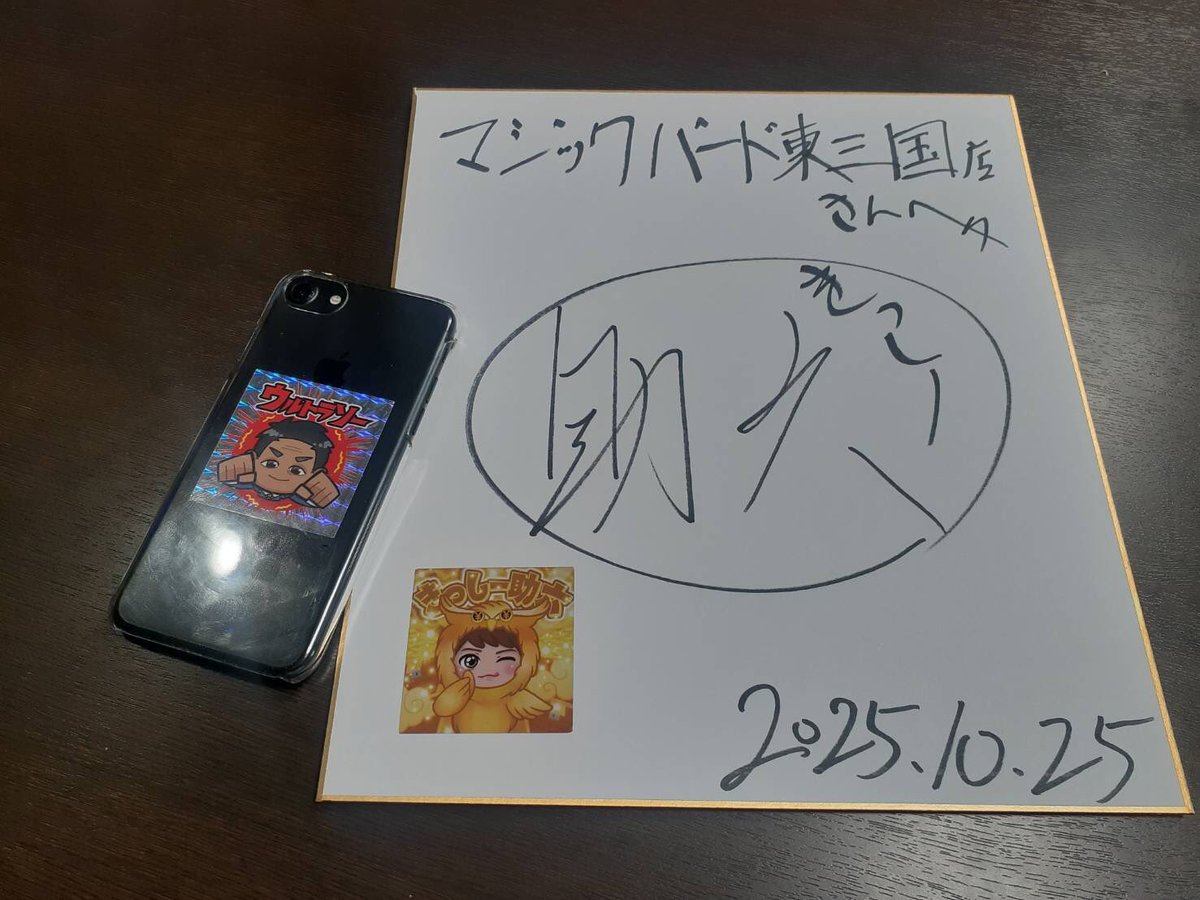 マジックバード東三国店
さんへ
きっしー
助六
ウルトラソー
きっしー助六
2025.10.25